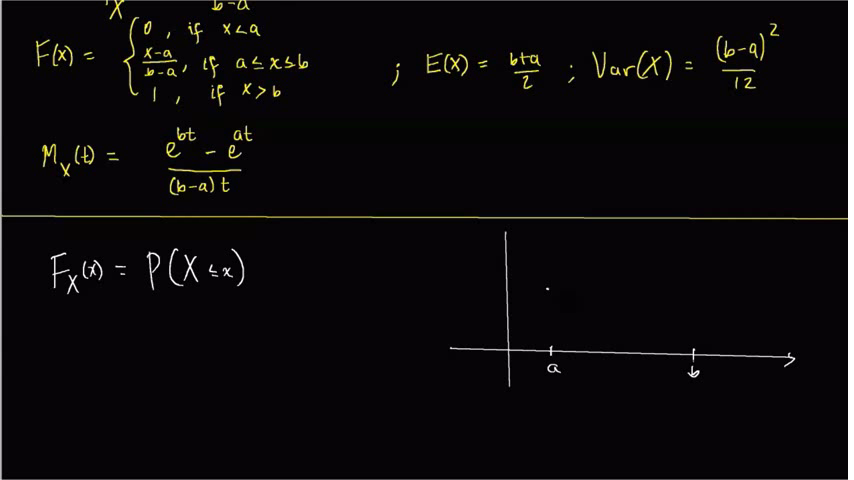 X b-a
F(x) = { 0, if x<a
x-a/b-a, if a≤x≤b
1, if x>b
; E(x) = b+a/2 ; Var(X) = (b-a)²/12
M_X(t) = e^bt - e^at/(b-a)t
F_X(x) = P(X≤x)
a b